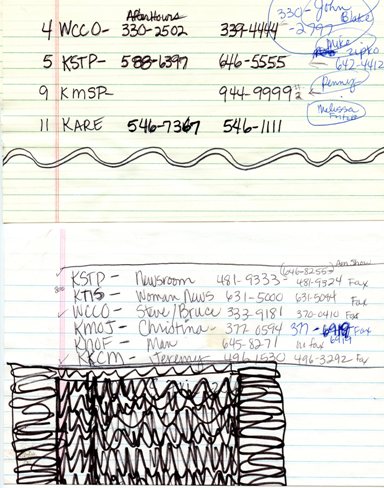 330- John Blake
-2797
After Hours
4 WCCO- 330-2502 339-4444
Mike zipko
5 KSTP- 588-6397 646-5555 642-4412
9 KMSP 944-9999
Penney
Melissa
11 KARE 546-7367 546-1111
(646-8255) Am Show
KSTP - Newsroom 481-9333- 481-9324 Fax
KTIS - Woman News 631-5000 631-5084 Fax
WCCO - Steve/Bruce 333-9181 370-0410 Fax
KMOJ- Christina - 377 0594 377- Fax
KNOF - Man 645-8271 no fax
KKCM - Jeremy 496 1530 496-3292 Fax